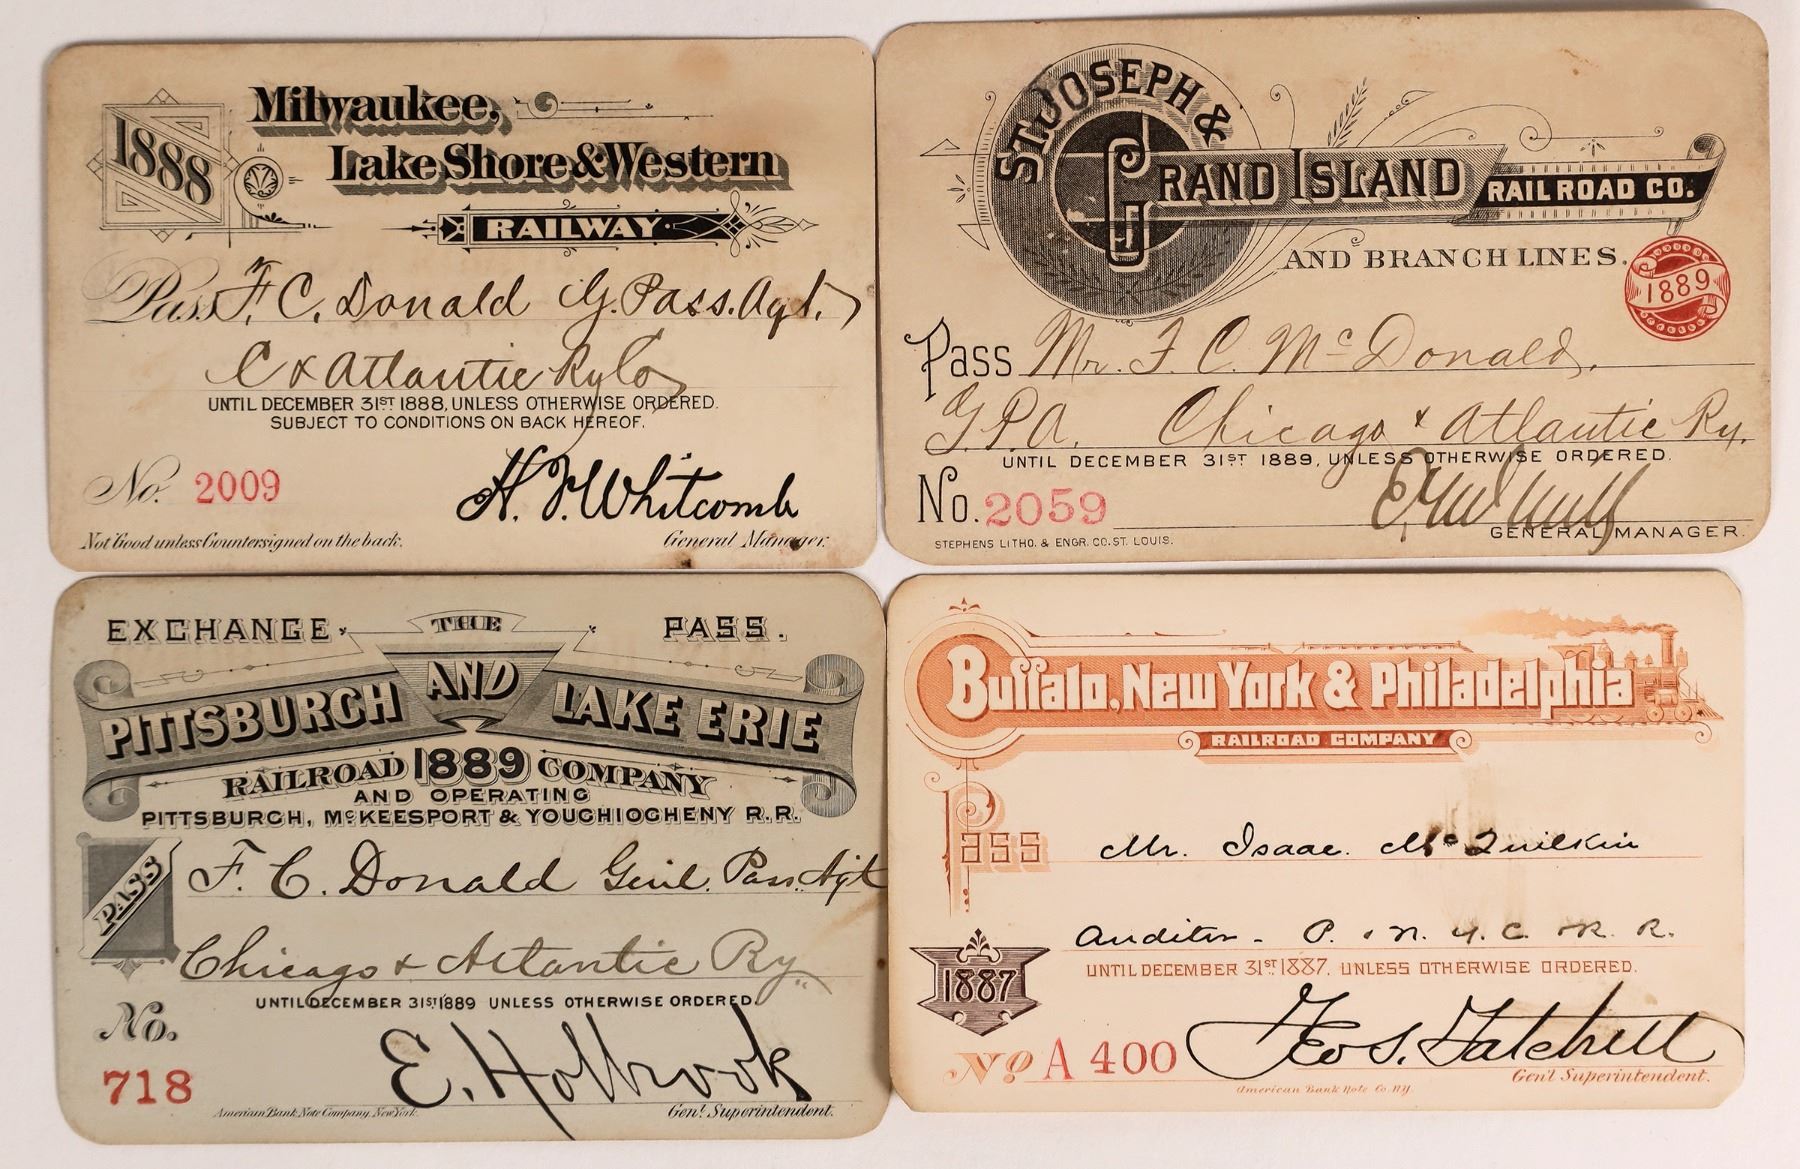 1888
Milwaukee,
Lake Shore & Western
RAILWAY
Pass F. C. Donald G. Pass. Agt.
C & Atlantic Ry Co
UNTIL DECEMBER 31ST 1888, UNLESS OTHERWISE ORDERED.
SUBJECT TO CONDITIONS ON BACK HEREOF.
No. 2009
H. F. Whitcomb
Not Good unless Countersigned on the back.
General Manager.
ST. JOSEPH &
GRAND ISLAND
RAILROAD CO.
AND BRANCH LINES.
1889
Pass Mr. F. C. McDonald,
G.P.A. Chicago & Atlantic Ry.
UNTIL DECEMBER 31ST 1889, UNLESS OTHERWISE ORDERED.
No. 2059
GENERAL MANAGER.
STEPHENS LITHO. & ENGR. CO. ST. LOUIS.
EXCHANGE THE PASS.
PITTSBURGH AND LAKE ERIE
RAILROAD 1889 COMPANY
AND OPERATING
PITTSBURGH, McKEESPORT & YOUGHIOGHENY R.R.
PASS
F. C. Donald Genl. Pass. Agt
Chicago & Atlantic Ry
UNTIL DECEMBER 31ST 1889 UNLESS OTHERWISE ORDERED.
No.
718
E. Holbrook
American Bank Note Company, New York.
Genl. Superintendent.
Buffalo, New York & Philadelphia
RAILROAD COMPANY
Pass Mr. Isaac McQuilkin
Auditor - P. & N. Y. C. & R. R.
UNTIL DECEMBER 31ST 1887, UNLESS OTHERWISE ORDERED.
1887
No A 400
Geo S. Gatchell
Gen'l Superintendent.
American Bank Note Co. NY.